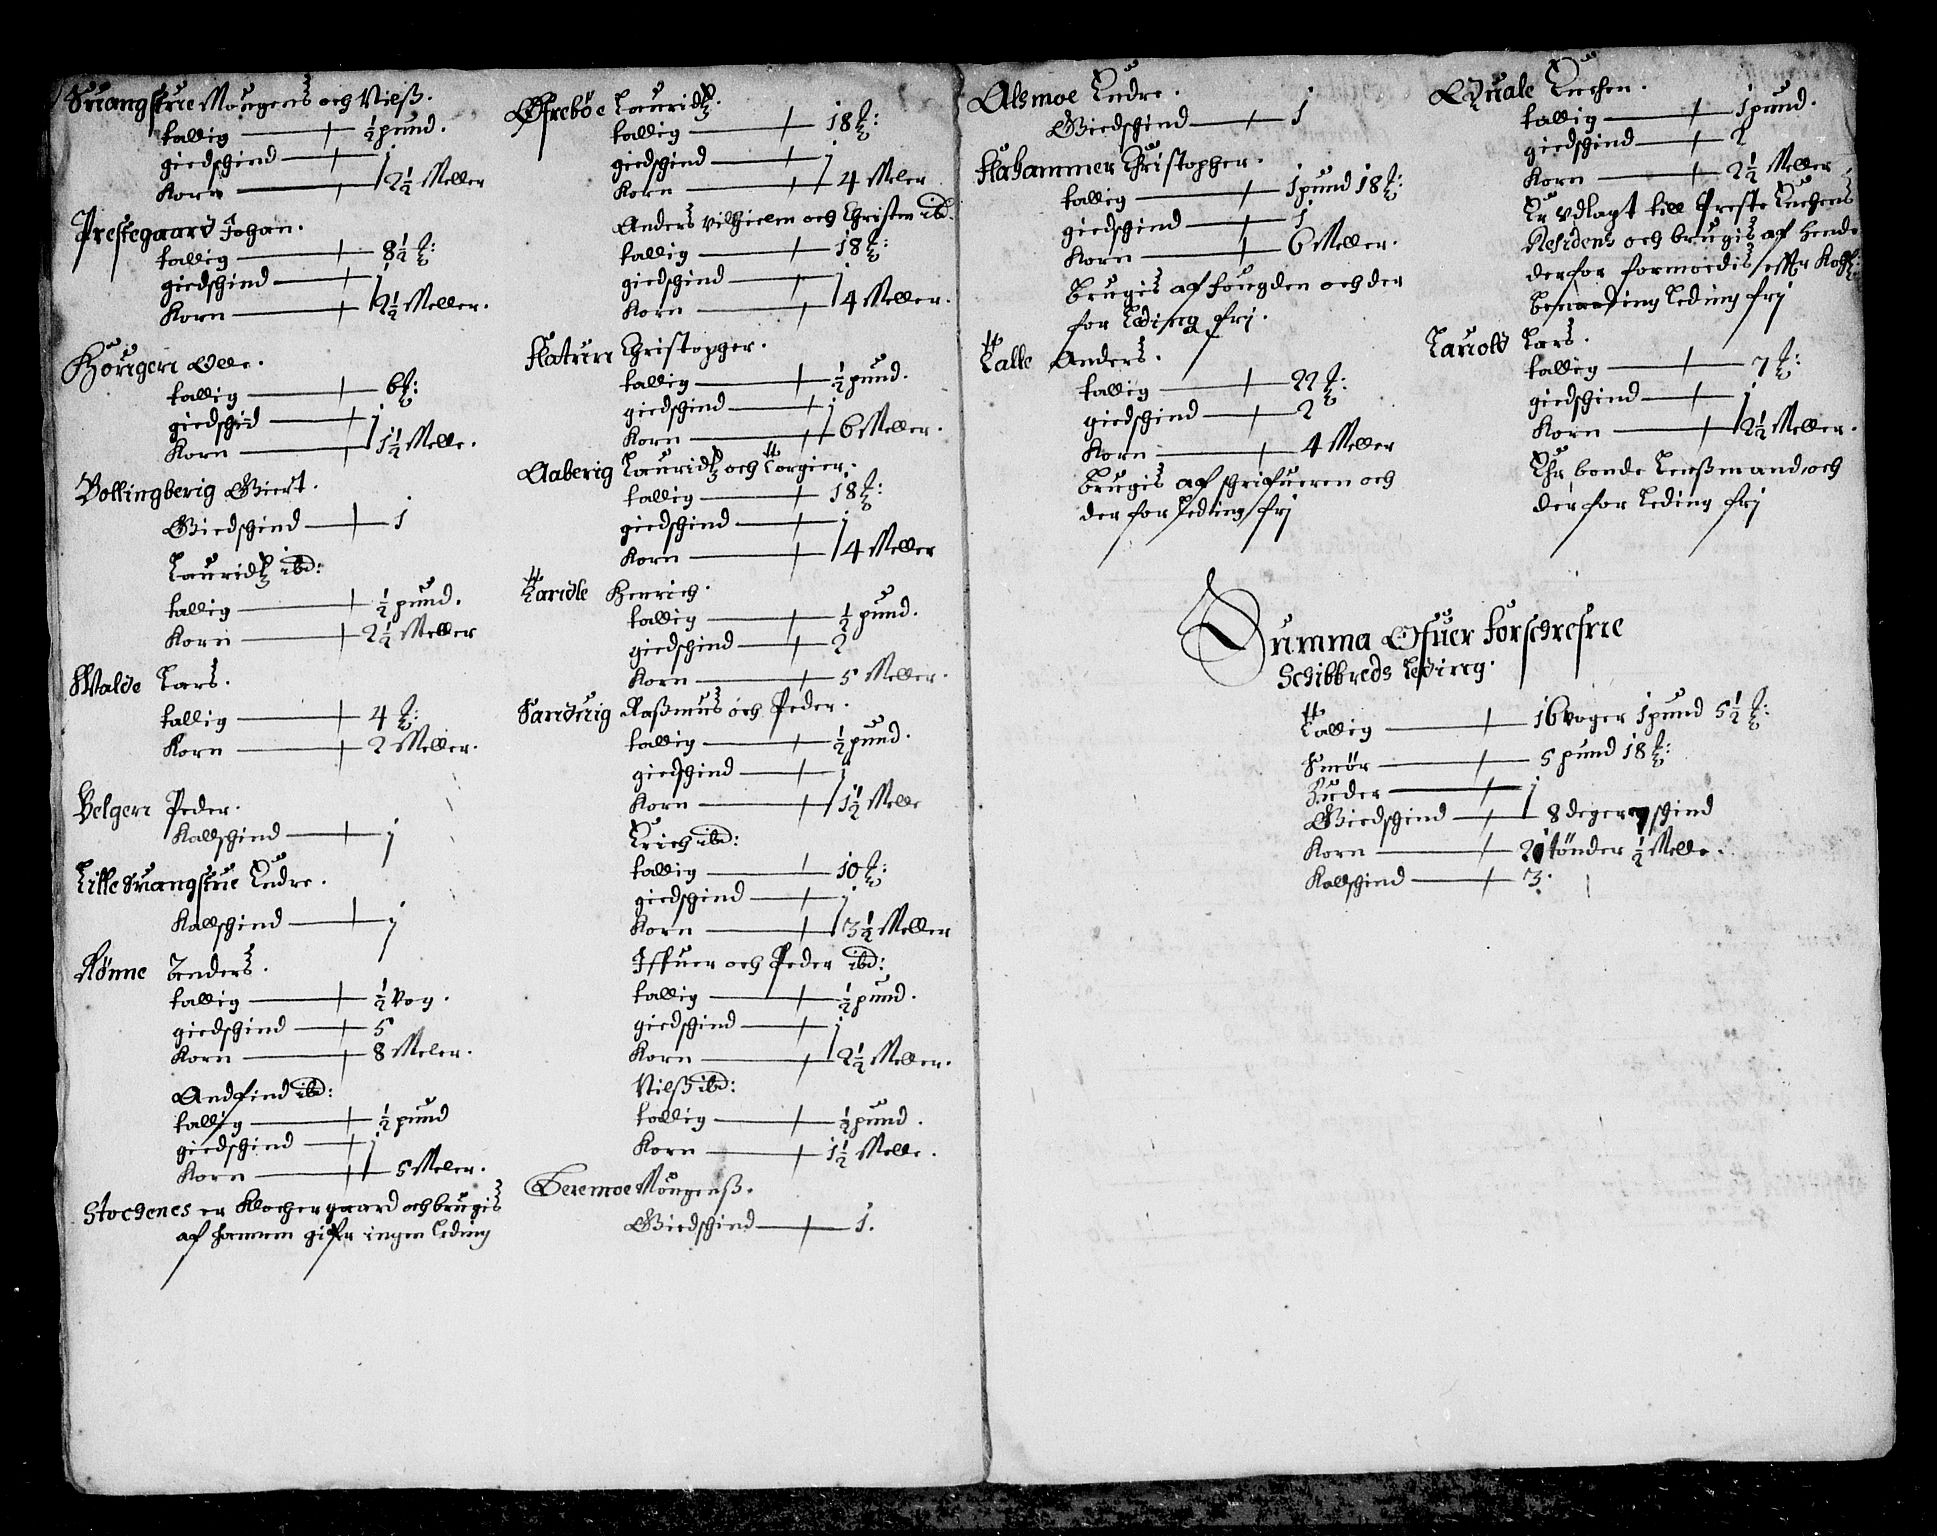 Suangstue Mougens och Nielß.
tallig — ½ pund.
giedschind — j
Korn — 2½ Meller
Prestegaard Johan.
tallig — 8½ ℔:
giedschind — j
Korn — 2½ Meller.
Olle.
tallig — 6 ℔:
giedschid — j
Korn — 1½ Melle.
Bollingberig Giert.
Giedschind — 1
Lauridtz ibd:
tallig — ½ pund.
Korn — 2½ Meller
Hualde Lars.
tallig — 4 ℔:
Korn — 2 Meller.
Helgen Peder.
Kallschind — j
Lille Suangstue Endre.
Kallschind — j
Rønne Enders.
tallig — ½ Vog.
giedschind — 5
Korn — 8 Meler.
Andfind ibd:
tallig — ½ pund
giedschind — j
Korn — 5 Meler.
Stochenes er Klocher gaard och brugis
af hannem gifr ingen leding
Øfrebøe Lauridtz.
tallig — 18 ℔:
giedschind — j
Korn — 4 Meler
Anders Vilhielm och Christen ibd.
tallig — 18 ℔:
giedschind — j
Korn — 4 Meller.
Flatun Christopher.
tallig — ½ pund.
giedschind — j
Korn — 6 Meller.
Aaberig Lauridtz och Torgier.
tallig — 18 ℔:
giedschind — j
Korn — 4 Meller
Henrich.
tallig — ½ pund.
giedschind — 2
Korn — 5 Meller.
Sanduig Raßmus och Peder.
tallig — ½ pund.
giedschind — j
Korn — 1½ Melle
Erich ibd:
tallig — 10 ℔:
giedschind — j
Korn — 3½ Meller
Iffuer och Peder ibd:
tallig — ½ pund.
giedschind — j
Korn — 2½ Meller.
Nilß ibd:
tallig — ½ pund.
Korn — 1½ Melle.
Mougenß.
Giedschind — 1.
Alsmoe Endre.
Giedschind — 1
Flahammer Christopher.
tallig — 1 pund 18 ℔:
giedschind — 1
Korn — 6 Meller.
brugis af fougden och der
for leding fri.
Talle Anders.
tallig — 22 ℔:
giedschind — 2
Korn — 4 Meller
brugis af schrifueren och
der for leding frj
Quale Enchen.
tallig — 1 pund.
giedschind — 2
Korn — 2½ Meller
Er Vdlagt till Preste Enchens
Residens och brugis af hende
derfor formoedis effter Kong:
benaading leding frj
Lauold Lars.
tallig — 7 ℔:
giedschind — j
Korn — 2½ Meller.
Ehr bonde Lenßmand och
der for leding frj
Summa Ofuer forschrefne
Schibbreds leding.
Tallig — 16 voger 1 pund 5½ ℔:
Smør — 5 pund 18 ℔:
Huder — j
Giedschind — 8 deger 7 schind
Korn — 21 tønder ½ Melle.
Kallschind — 3.